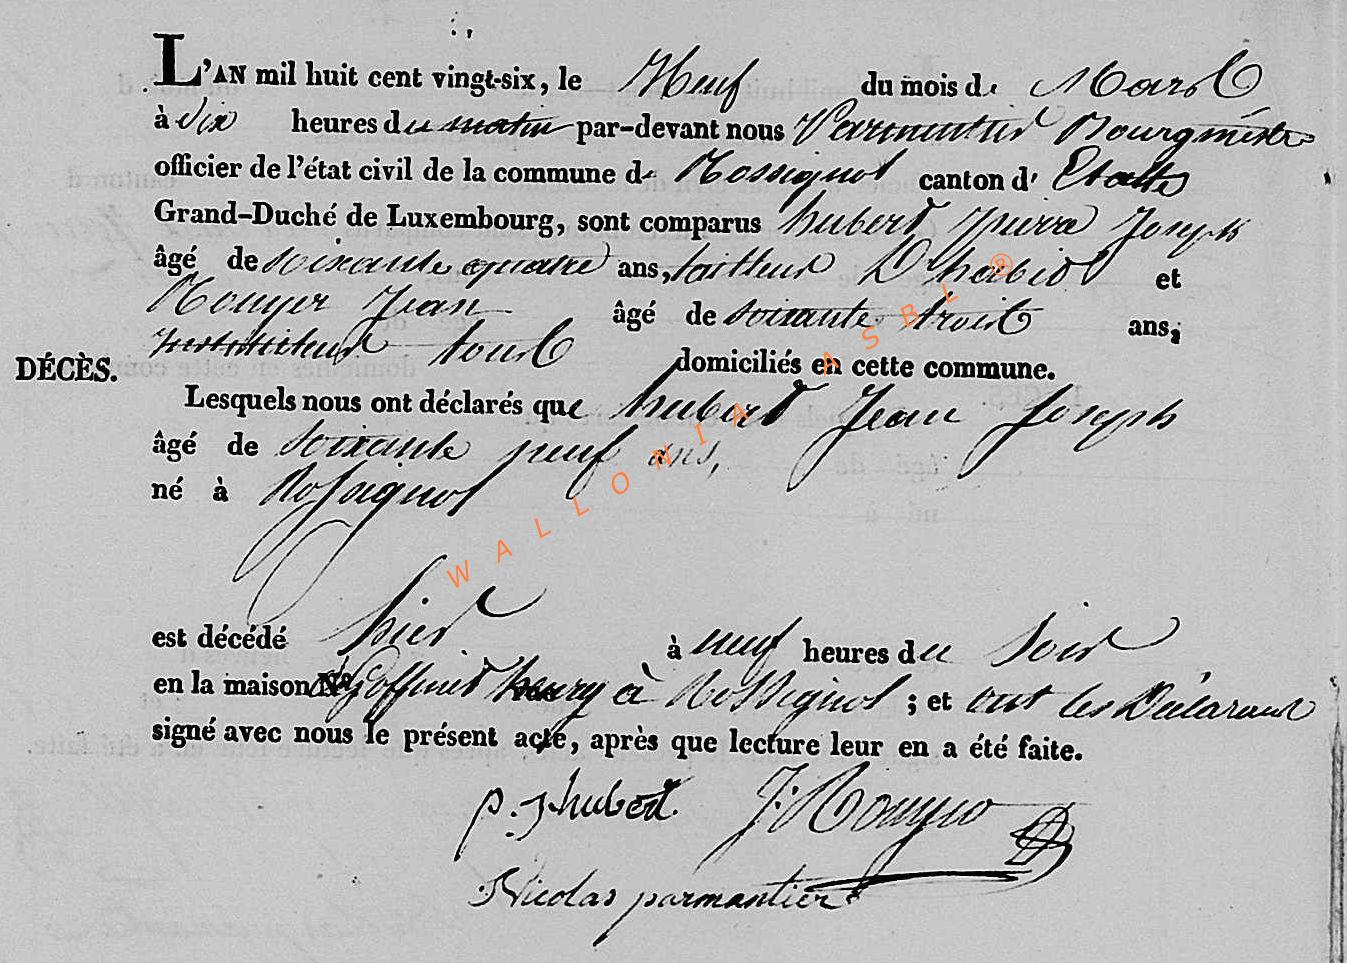 L'AN mil huit cent vingt-six, le Neuf du mois de Mars
à dix heures du matin par-devant nous Parmentier Bourgmestre
officier de l'état civil de la commune de Rossignol canton d' Etalle
Grand-Duché de Luxembourg, sont comparus hubert pierre Joseph
âgé de soixante quatre ans, tailleur D'habit et
Rouger Jean âgé de soixante trois ans,
Instituteur tous domiciliés en cette commune.
DÉCÈS.
Lesquels nous ont déclarés que hubert Jean Joseph
âgé de soixante neuf ans,
né à Rossignol
est décédé hier à neuf heures du Soir
en la maison N° Goffinet henry à Rossignol ; et ont les Déclarant
signé avec nous le présent acte, après que lecture leur en a été faite.
p. J hubert. J: Rouger
Nicolas parmantier
WALLONIA ASBL ®